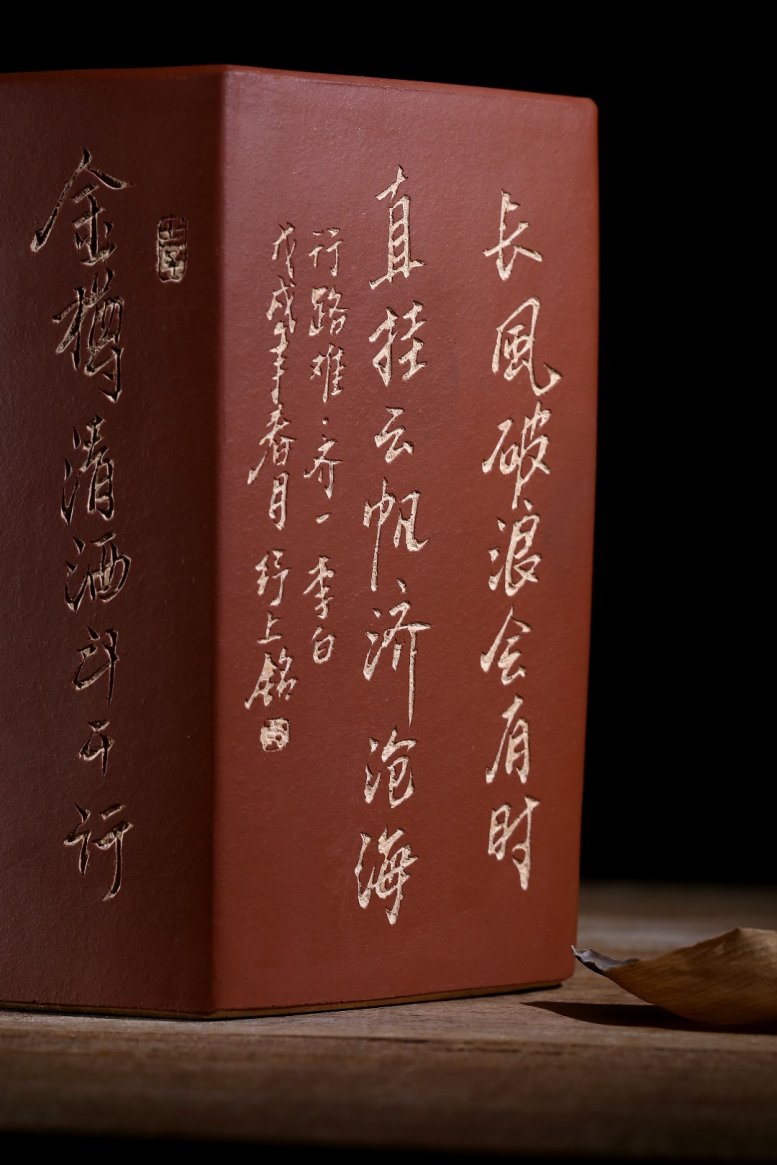 长風破浪会有时
直挂云帆济沧海
行路难·齐一 李白
戊戌年春月 纾上铭
金樽清酒